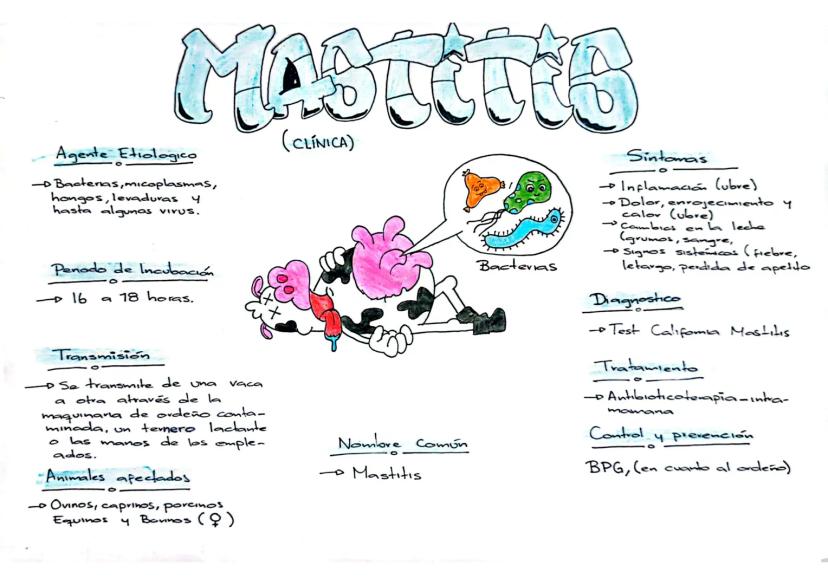 MASTITIS
(CLÍNICA)
Agente Etiologico
Bacterias, micoplasmas,
hongos, levaduras y
hasta algunos virus.
Periodo de Incubación
16 a 18 horas.
Transmisión
Se transmite de una vaca
a otra através de la
maquinaria de ordeño conta-
minada, un ternero lactante
o las manos de los emple-
ados.
Animales afectados
Ovinos, caprinos, porcinos
Equinos y Bovinos (♀)
Bacterias
Nombre Común
Mastitis
Sintomas
Inflamación (ubre)
Dolor, enrojecimiento y
calor (ubre)
Cambios en la leche
(grumos, sangre,
Signos sistémicos (fiebre,
letargo, perdida de apetito
Diagnostico
Test California Mastitis
Tratamiento
Antibioticoterapia-intra-
mamaria
Control y prevención
BPG, (en cuanto al ordeño)